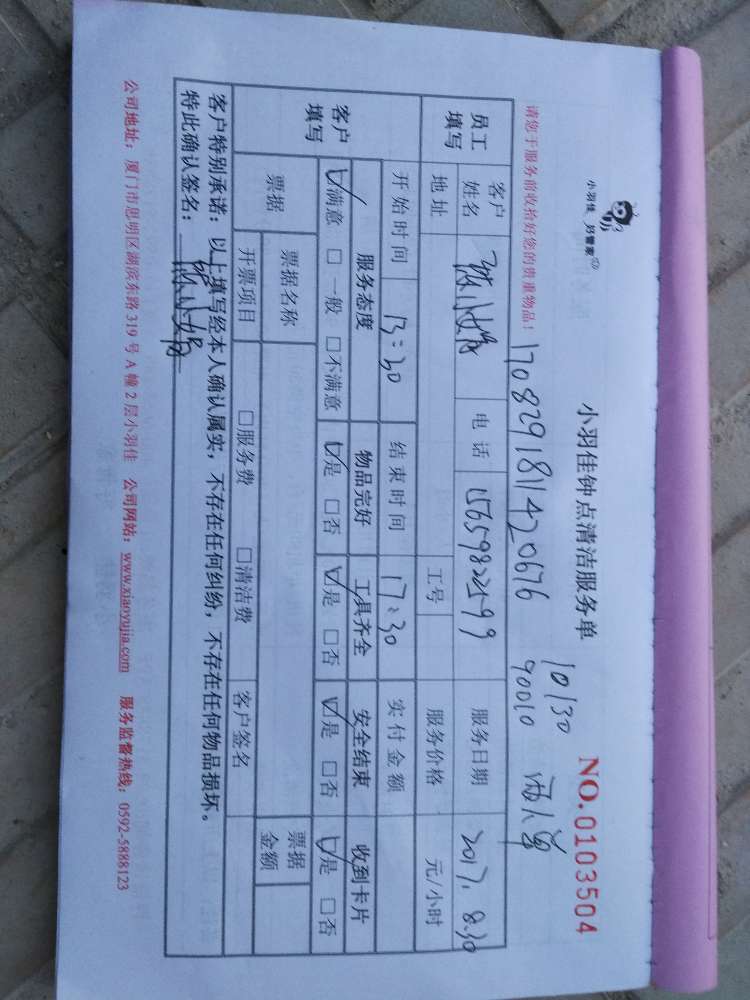 小羽佳 好管家
小羽佳钟点清洁服务单
10130
NO.0103504
170829181142067б
90010
请您于服务前收拾好您的贵重物品！
员工填写
客户姓名 电话 15659832599 服务日期 2017.8.30
地址 工号 服务价格 元/小时
开始时间 13:30 结束时间 17:30 实付金额
客户填写
服务态度 物品完好 工具齐全 安全结束 收到卡片
☑满意 □一般 □不满意 ☑是 □否 ☑是 □否 ☑是 □否 ☑是 □否
票据 票据名称 票据金额
开票项目 □服务费 □清洁费 客户签名
客户特别承诺：以上填写经本人确认属实，不存在任何纠纷，不存在任何物品损坏。
特此确认签名：
公司地址：厦门市思明区湖滨东路 319 号 A 幢 2 层小羽佳 公司网站：www.xiaoyujia.com 服务监督热线：0592-5888123